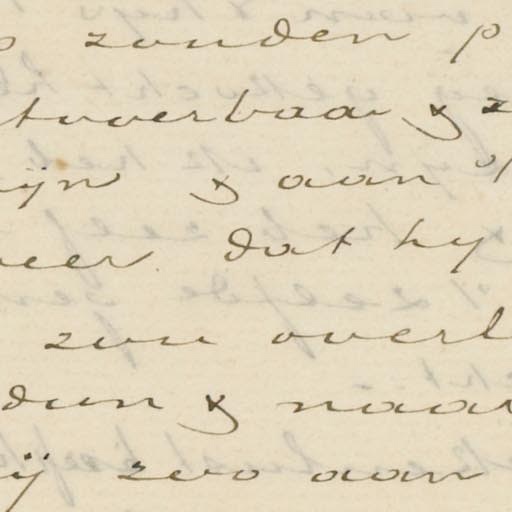 zouden p
tvoerbaar & z
ijn & aan
eer dat hy
zou overl
dun & naar
ij zoo aan